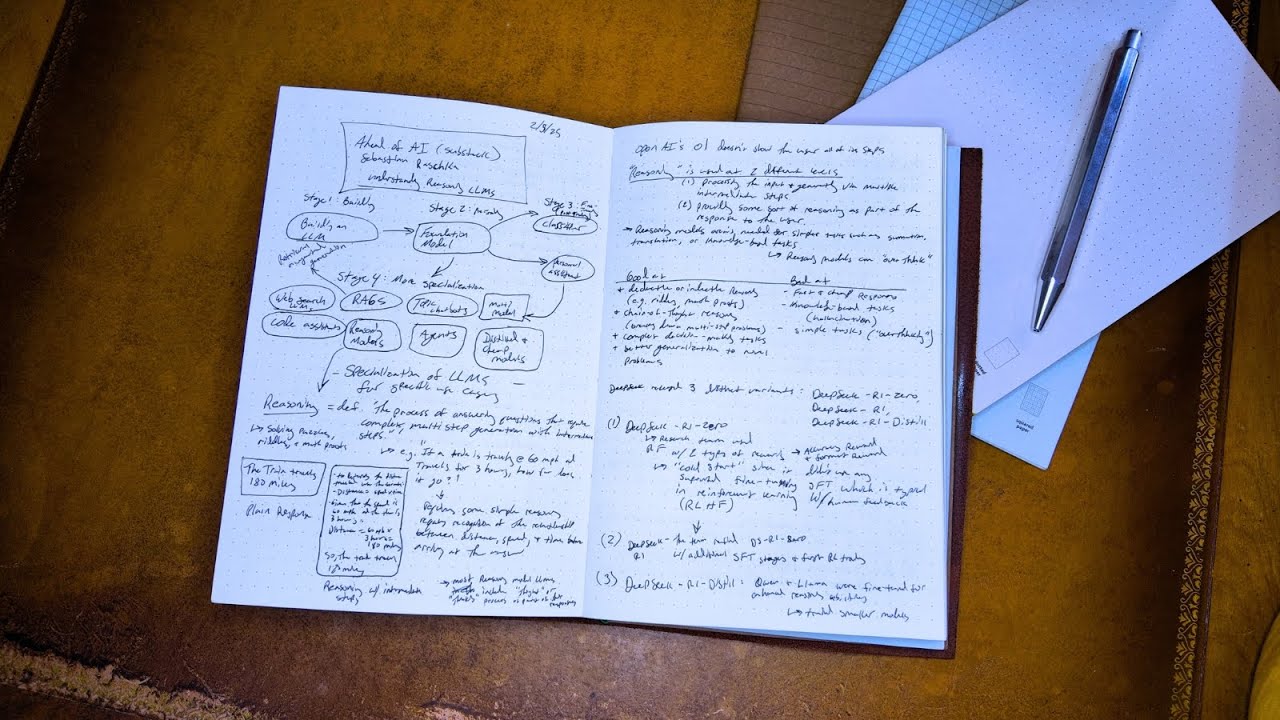 2/8/25
Ahead of AI (substack)
Sebastian Raschka
Understanding Reasoning LLMs
Stage 1: Building
Building an
LLM
Stage 2:
Foundation
Model
Stage 3: Fine
tuning
classifier
personal
assistant
Retrieval
augmented
generation
Stage 4: More Specialization
Web Search
LLMs
RAGs
Topic
chatbots
multi
modal
code assistants
Reasoning
Models
Agents
Distilled &
cheap
models
- Specialization of LLMs
for specific use cases
Reasoning = def. The process of answering questions that require
complex, multi step generation with intermediate
steps."
↳ Solving puzzles,
riddles, & math proofs
↳ e.g. "If a train is traveling @ 60 mph and
travels for 3 hours, how far does
it go?"
The Train travels
180 miles
Plain Response
Distance = 60 mph x
3 hours =
180 miles
So, the train travels
180 miles
Reasoning w/ intermediate
steps
Requires some simple reasoning
requires recognition of the relationship
between distance, speed, & time before
arriving at the answer
↳ most Reasoning model LLMs
include "thought" or
"thinking" process as part of the
response
open AI's o1 doesn't show the user all of its steps
"Reasoning" is used at 2 different levels
(1) processing the input & generating via multiple
intermediate steps
(2) providing some sort of reasoning as part of the
response to the user.
→ Reasoning models aren't needed for simple tasks such as summation,
translation, or knowledge-based tasks
↳ Reasoning models can "overthink"
Good at
+ deductive or inductive reasoning
(e.g. riddles, math proofs)
+ chain-of-thought reasoning
(breaking down multi-step problems)
+ complex decision-making tasks
+ better generalization to novel
problems
Bad at
- Fast & cheap responses
- Knowledge-based tasks
(hallucination)
- simple tasks ("overthinking")
DeepSeek released 3 distinct variants: DeepSeek-R1-Zero,
DeepSeek-R1,
DeepSeek-R1-Distill
(1) DeepSeek-R1-Zero
↳ Research team used
RF w/ 2 types of reward → Accuracy Reward
+ format Reward
↳ "cold start" since it didn't use any
supervised fine-tuning SFT which is typical
in reinforcement learning w/ human feedback
(RLHF)
(2) DeepSeek-R1 - The team used DS-R1-Zero
w/ additional SFT stages & further RL training
(3) DeepSeek-R1-Distill: Qwen & Llama were fine-tuned for
enhanced reasoning abilities
↳ trained smaller models
squared
paper